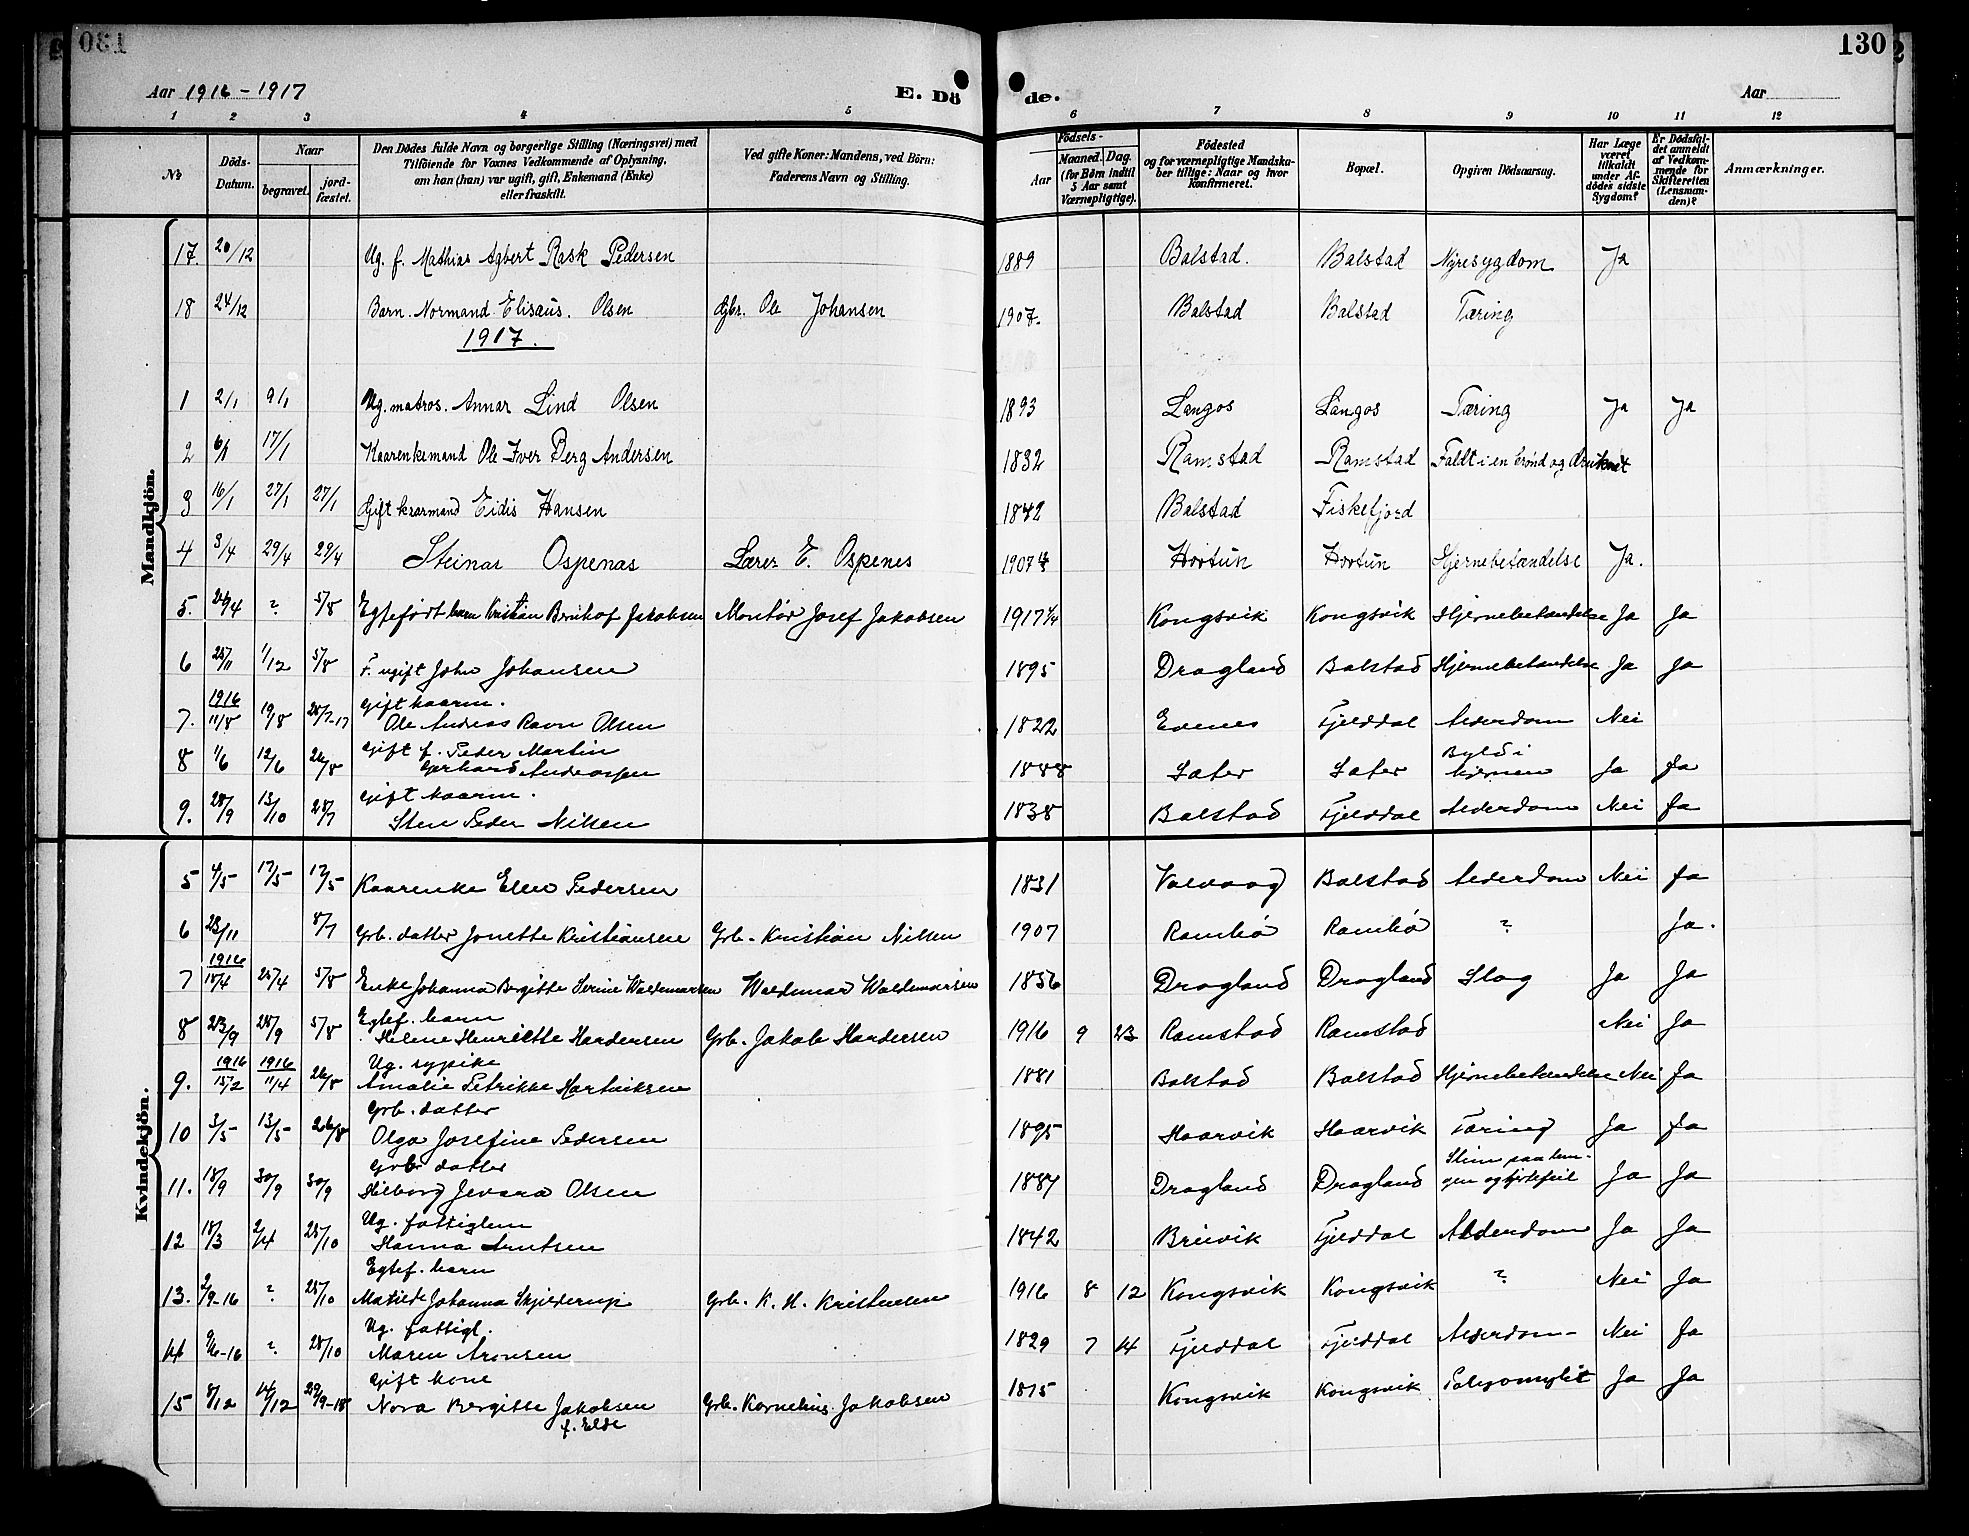 130
Aar 1916 - 1917
E. Dö de.
Aar
1 2 3 4 5 6 7 8 9 10 11 12
№
Döds-Datum.
Naar
begravet.
jord-fæstet.
Den Dödes fulde Navn og borgerlige Stilling (Næringsvei) med
Tilföiende for Voxnes Vedkommende af Oplysning,
om han (hun) var ugift, gift, Enkemand (Enke)
eller fraskilt.
Ved gifte Koner: Mandens, ved Börn:
Faderens Navn og Stilling.
Födsels-
Aar
Maaned. Dag.
(for Börn indtil
5 Aar samt
Værnepligtige).
Födested
og for værnepligtige Mandska-
ber tillige: Naar og hvor
konfirmeret.
Bopæl.
Opgiven Dödsaarsag.
Har Læge
været
tilkaldt
under Af-
dödes sidste
Sygdom?
Er Dödsfal-
det anmeldt
af Vedkom-
mende for
Skifteretten
(Lensman-
den)?
Anmærkninger.
Mandkjön.
17. 20/12 Ug. f. Mathias Agbert Rask Pedersen 1889 Balstad. Balstad Nyresygdom Ja
18 24/12 Barn. Normand Elisæus. Olsen Gbr. Ole Johansen 1907. Balstad Balstad Tæring
1917.
1 2/1 9/1 Ug. matros. Annar Lind Olsen 1893 Langos Langos Tæring Ja Ja
2 6/1 17/1 Kaarenkemand Ole Iver Berg Andersen 1832 Ramstad Ramstad Faldt i en brönd og druknet
3 16/1 27/1 27/1 Gift kaarmand Eidis Hansen 1842 Balstad Fiskefjord
4 3/4 29/4 29/4 Steinar Ospenas Lærer E. Ospenes 1907 Hovtun Hovtun Hjernebetændelse Ja.
5. ? 5/8 Egtefödt barn Kristian Bernhof Jakobsen Montör Josef Jakobsen 1917 Kongsvik Kongsvik Hjernebetændelse Ja Ja
6 25/11 1/12 5/8 F. ugift John Johansen 1895 Dragland Balstad Hjernebetændelse Ja Ja
1916 Gift kaarm.
7. 11/8 19/8 28/7-17 Ole Andreas Ravn Olsen 1822 Evenes Fjelddal Alderdom Nei
Gift f. Peder Martin Byld i
8 1/6 12/6 26/8 Gerhard Andreassen 1888 Sater Sater hjernen Ja Ja
Gift kaarm.
9. 28/9 13/10 28/7 Sten Peder Nilsen 1838 Balstad Fjelddal Alderdom Nei Ja
Kvindekjön.
5 4/5 17/5 17/5 Kaarenke Ellen Pedersen 1831 Valvaag Balstad Alderdom Nei Ja
6 23/11 8/7 Grb. datter Jonette Kristiansen Grb. Kristian Nilsen 1907 Rambö Rambö ? Ja.
1916
7 18/4 25/4 5/8 Enke Johanna Bergitte Serine Waldemarsen Waldemar Waldemarsen 1856 Dragland Dragland Slag Ja Ja
Egtef. barn
8 23/9 28/9 5/8 Helene Henriette Hardersen Grb. Jakob Hardersen 1916 9 23 Ramstad Ramstad Nei Ja
1916 1916 Ug. sypike
9. 15/2 11/4 26/8 Amalie Petrikke Hartviksen 1881 Balstad Balstad Hjernebetændelse Nei Ja
Grb. datter
10 3/5 13/5 26/8 Olga Josefine Pedersen 1895 Haarvik Haarvik Tæring Ja Ja
Grb. datter Slim paa lun-
11. 18/9 30/9 30/9 Hilborg Jevara Olsen 1887 Dragland Dragland gen og hjertefeil Ja Ja
Ug. fattiglem
12 18/3 2/4 28/10 Hanna Arntsen 1842 Breivik Fjelddal Alderdom Ja Ja
Egtef. barn
13. 2/9-16 ? 28/10 Matilde Johanna Skjelderup Grb. K. H. Kristensen 1916 8 12 Kongsvik Kongsvik ? Nei Ja
Ug. fattigl.
14 ? 28/10 Maren Aronsen 1829 7 14 Fjelddal Fjelddal Alderdom Nei Ja
Gift kone
15 8/12 14/12 29/9-18 Nora Bergitte Jakobsen Grb. Kornelius Jakobsen 1875 Kongsvik Kongsvik Ja Ja
f. Elde